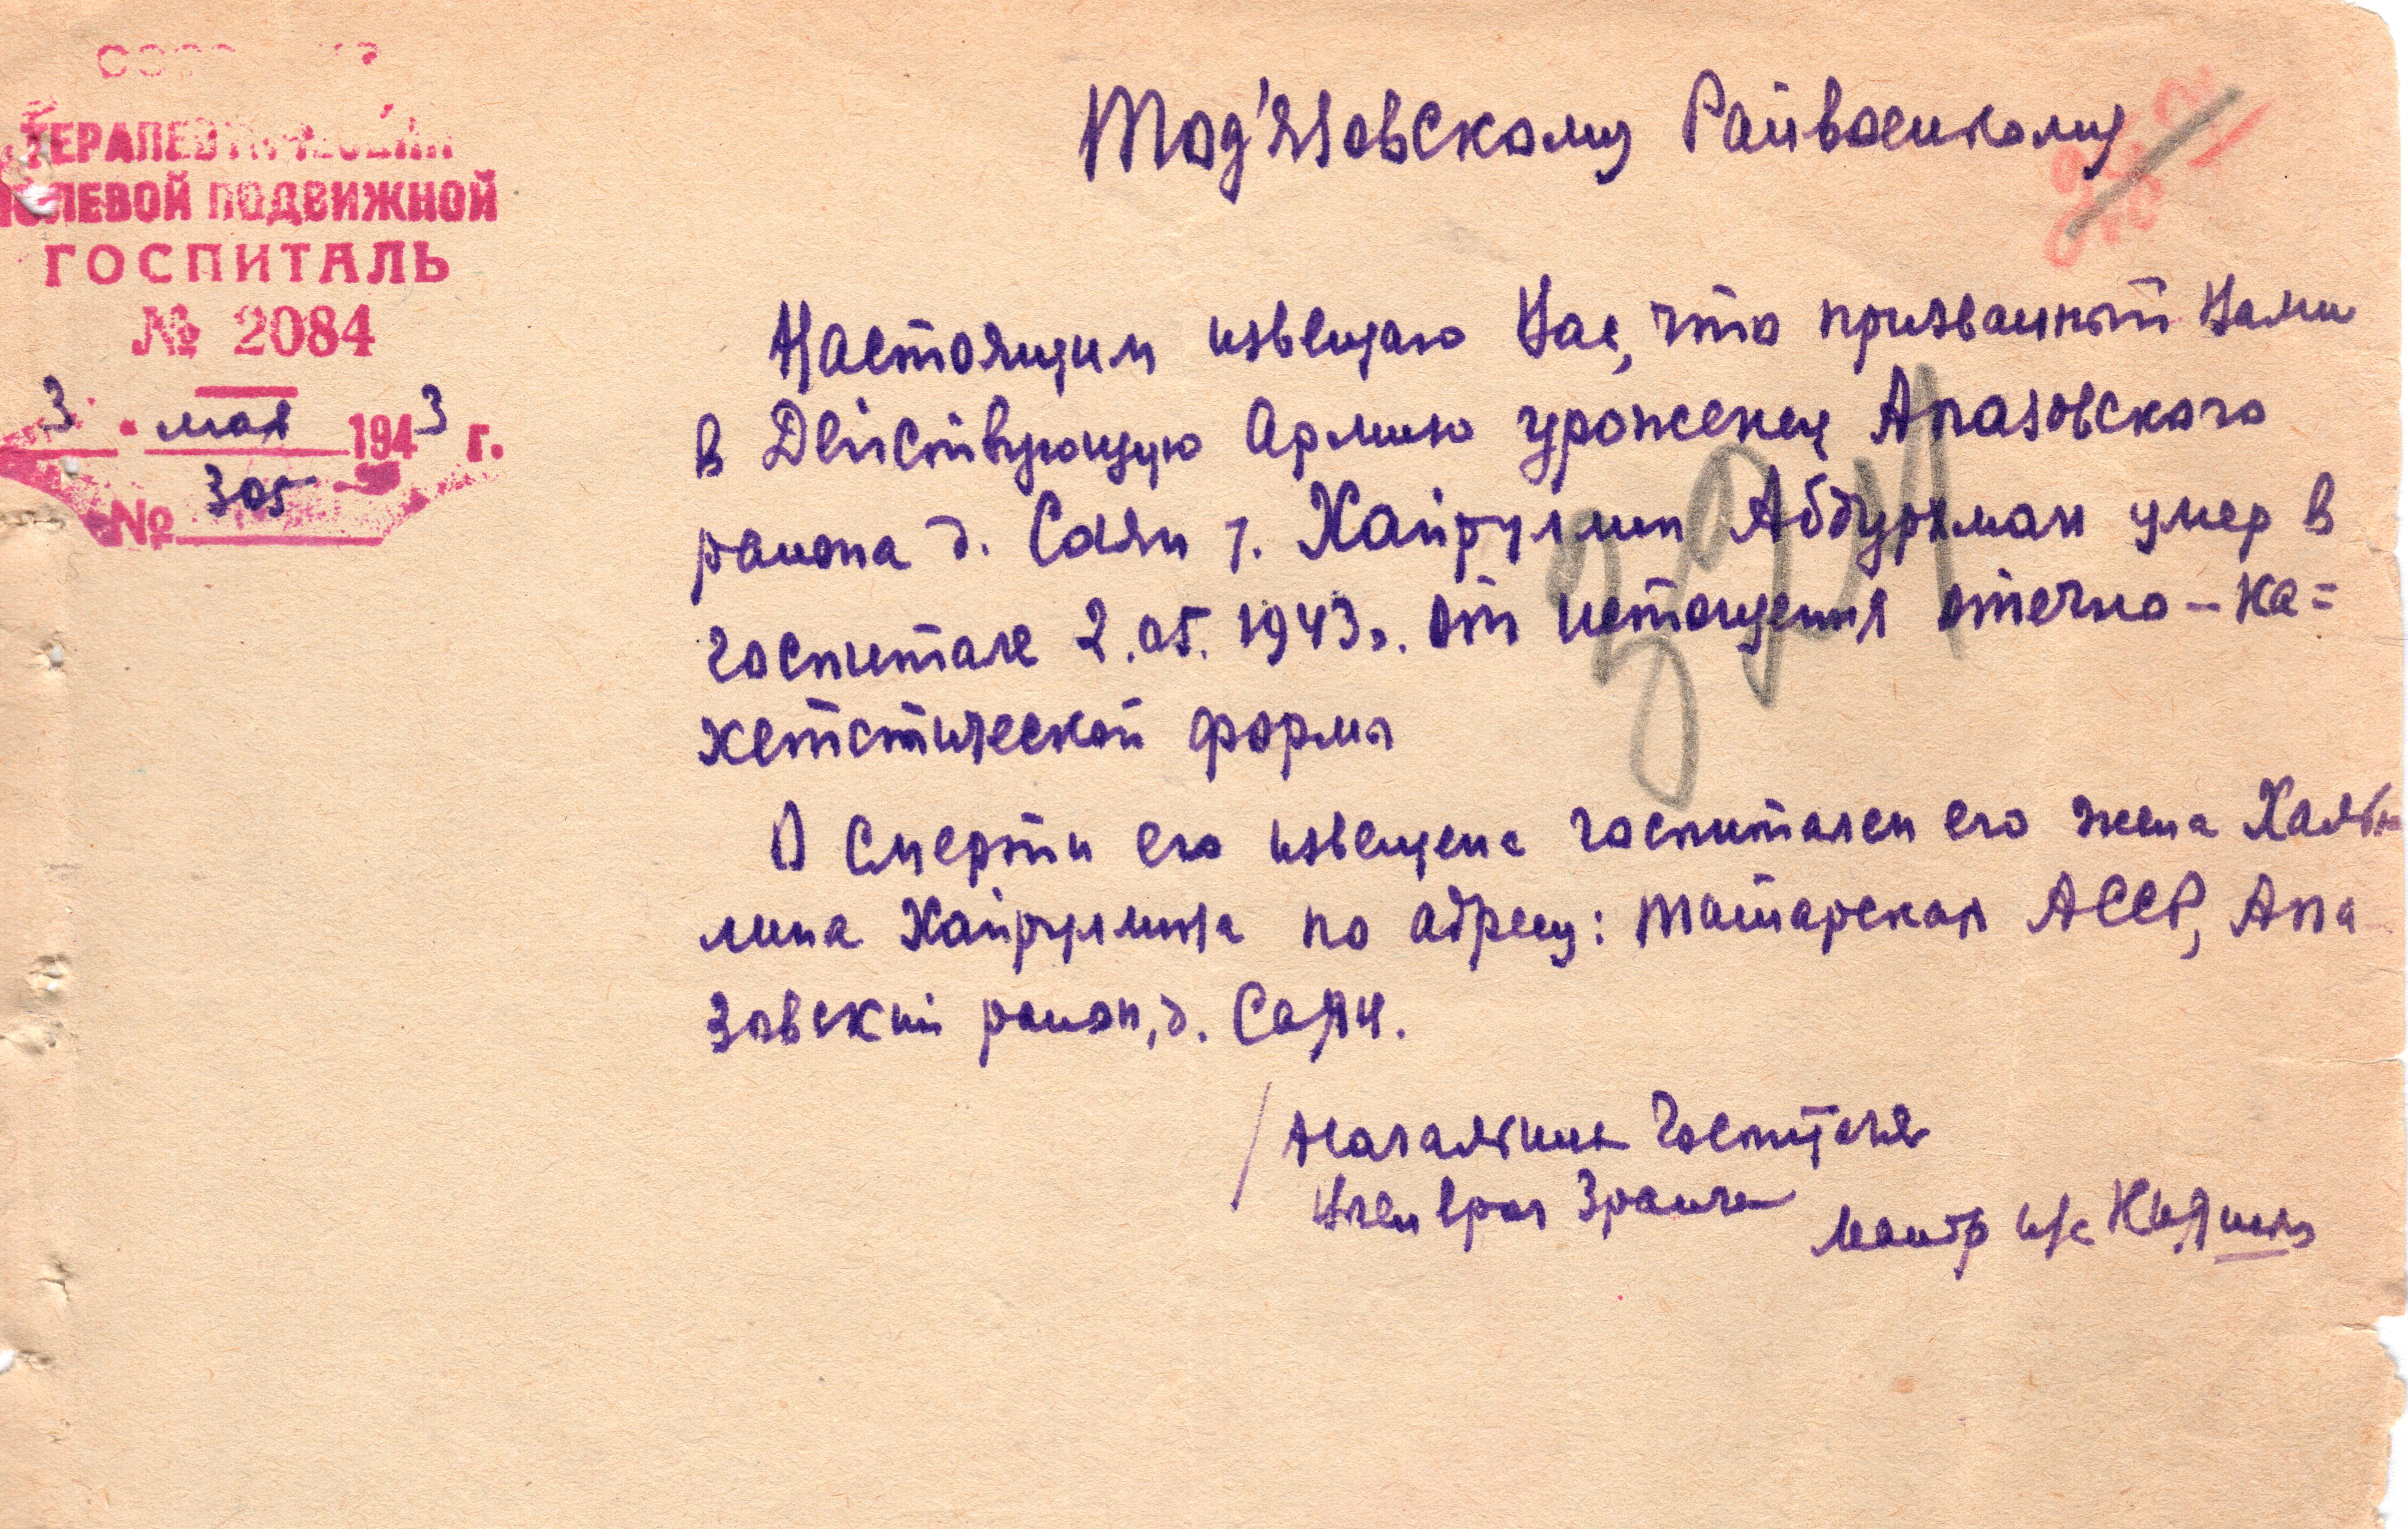 ТЕРАПЕВТИЧЕСКИЙ
ПОЛЕВОЙ ПОДВИЖНОЙ
ГОСПИТАЛЬ
№ 2084
3 мая 1943 г.
№ 305
Тод'язовскому Райвоенкому
Настоящим извещаю Вас, что призванный Вами
в Действующую Армию уроженец Апазовского
района д. Саян т. Хайруллин Абдурхман умер в
госпитале 2.05.1943г. от истощения отечно-ка=
хетстической формы
О смерти его извещена госпиталем его жена
Хайруллина по адресу: Татарская АССР, Апа
зовский район, д. Саян.
Начальник Госпиталя